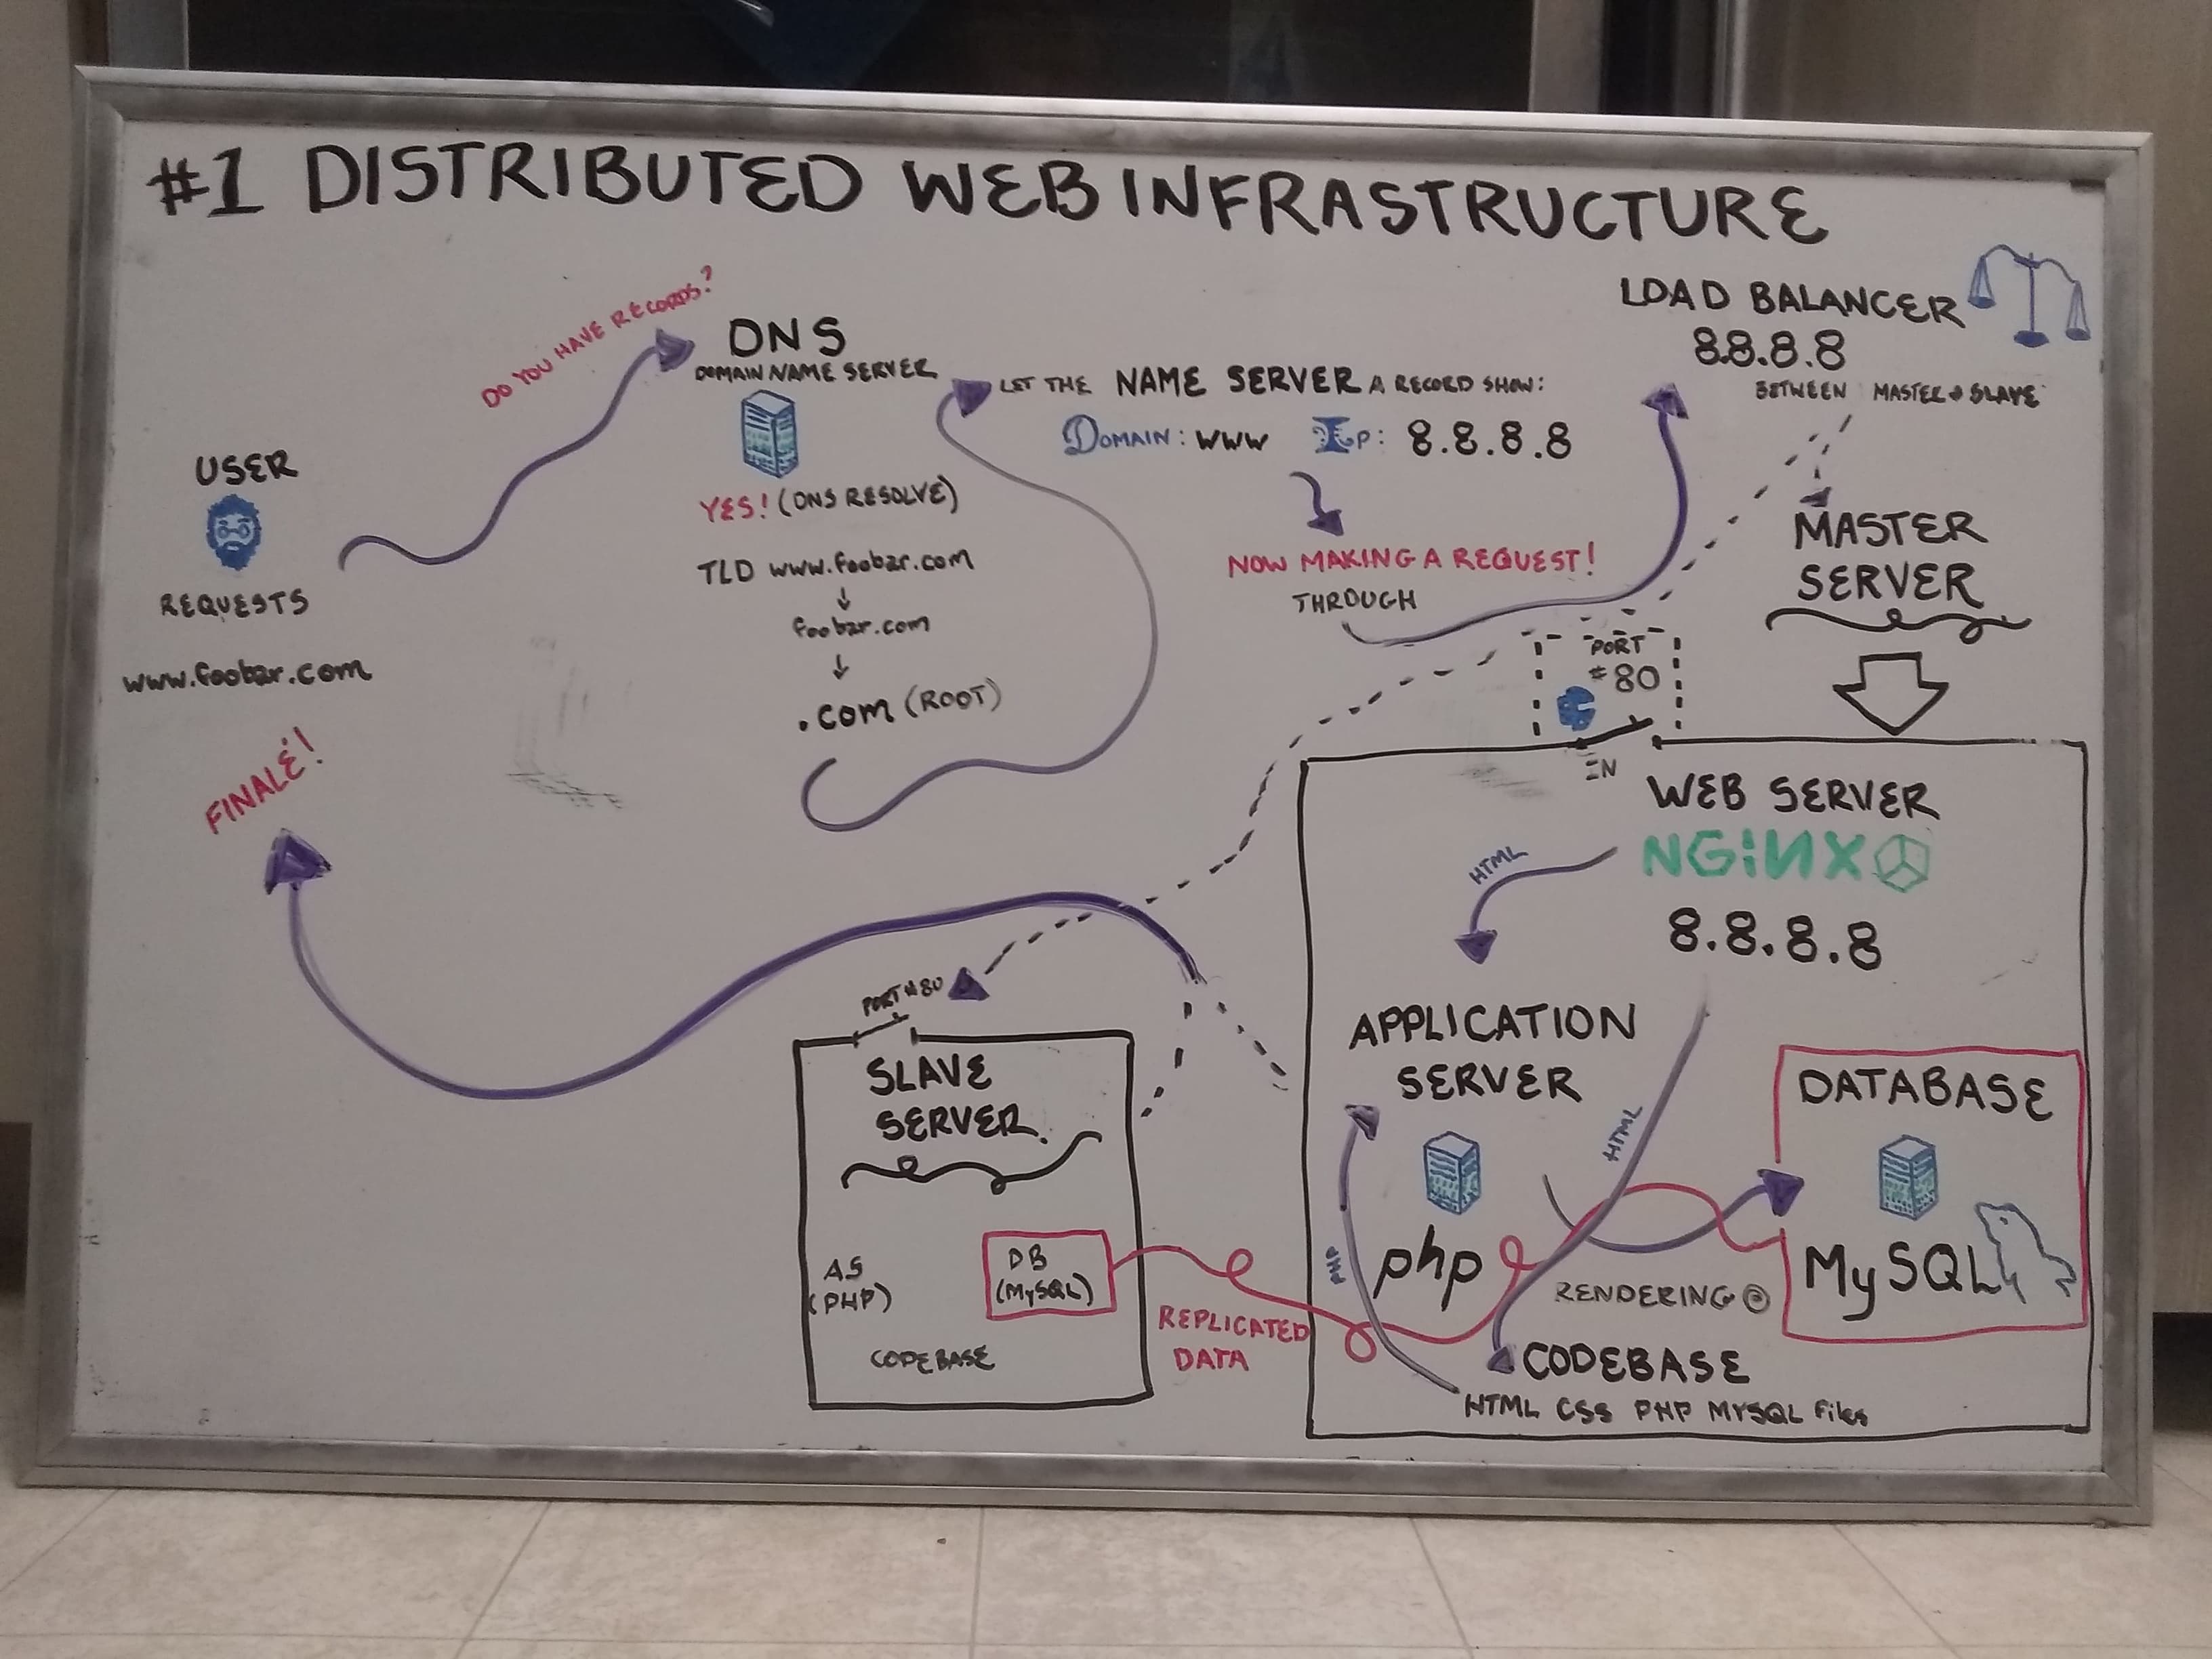 #1 DISTRIBUTED WEB INFRASTRUCTURE
DO YOU HAVE RECORDS?
USER
REQUESTS
www.foobar.com
DNS
DOMAIN NAME SERVER
YES! (DNS RESOLVE)
TLD www.foobar.com
foobar.com
.com (ROOT)
LET THE NAME SERVER A RECORD SHOW:
DOMAIN: WWW IP: 8.8.8.8
NOW MAKING A REQUEST!
THROUGH
LOAD BALANCER
8.8.8.8
BETWEEN MASTER & SLAVE
MASTER
SERVER
PORT
#80
IN
WEB SERVER
NGINX
8.8.8.8
HTML
APPLICATION
SERVER
php
PHP
HTML
DATABASE
MySQL
RENDERING
CODEBASE
HTML CSS PHP MYSQL Files
FINALE!
PORT #80
SLAVE
SERVER
AS
(PHP)
DB
(MySQL)
CODEBASE
REPLICATED
DATA